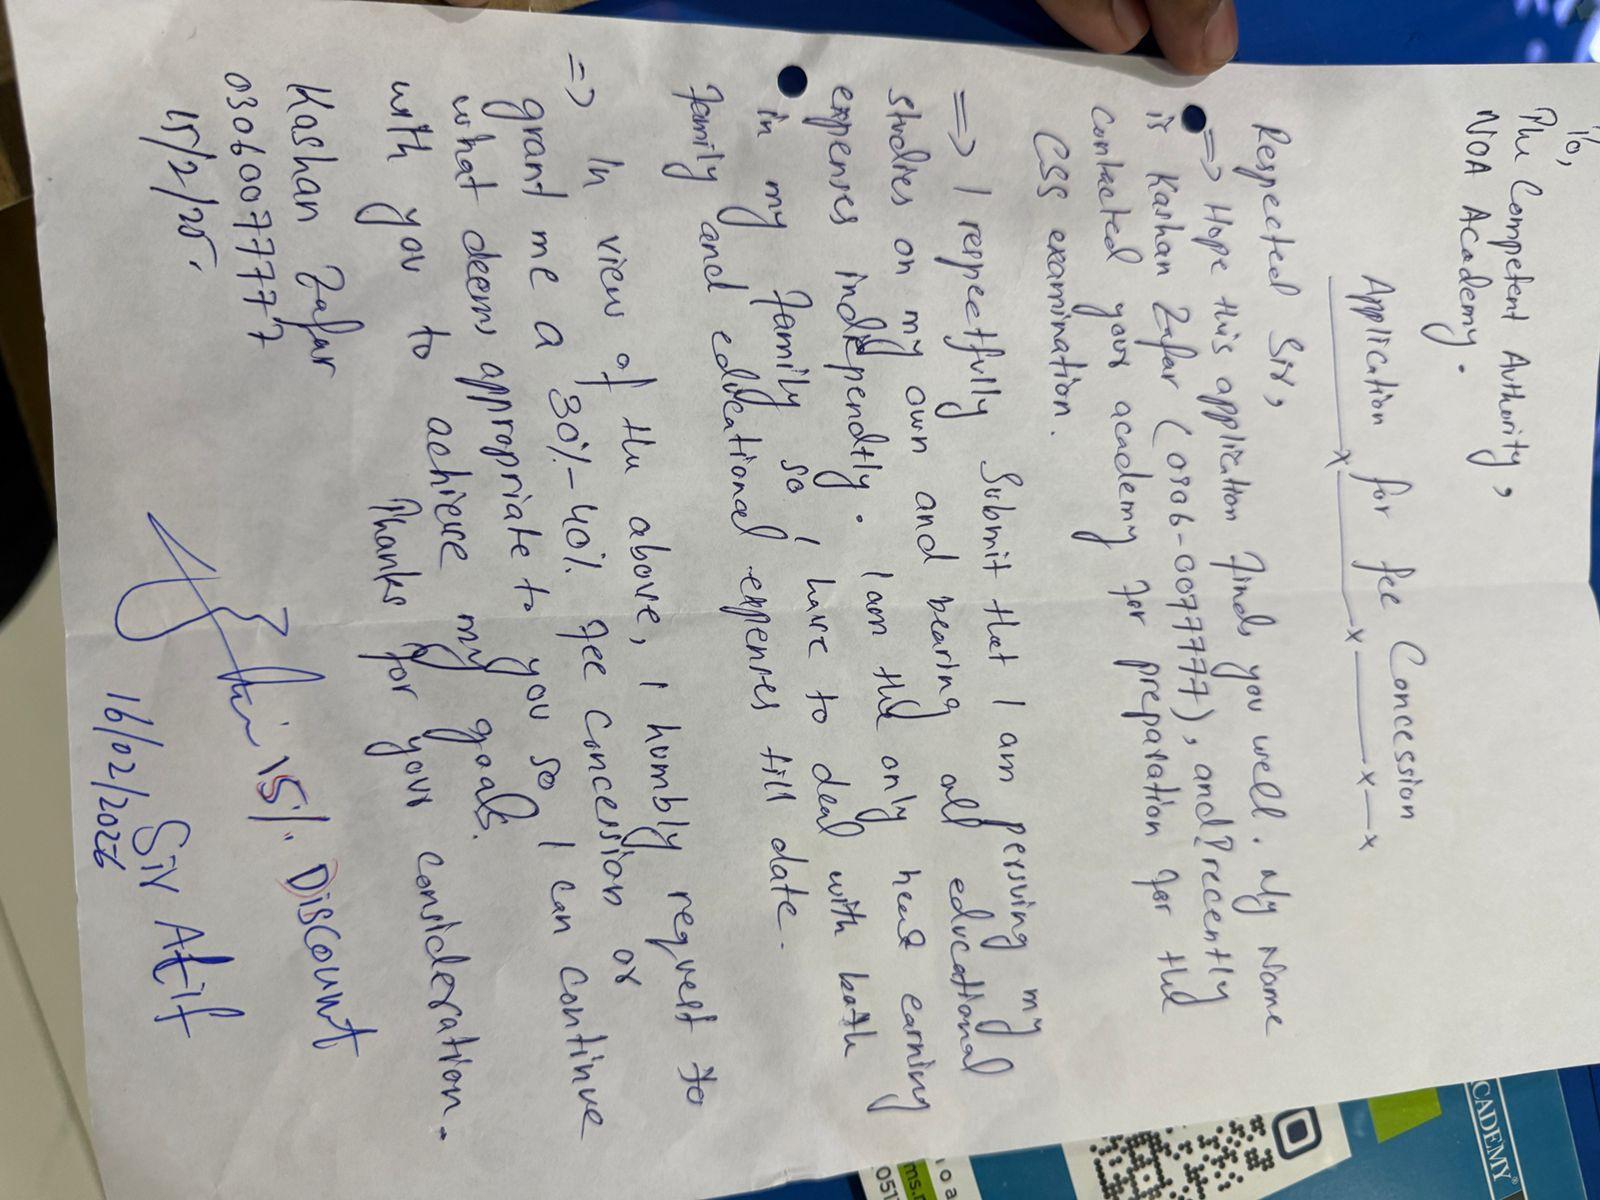 To,
The Competent Authority,
NOA Academy.
Application for fee Concession
Respected Sir,
=> Hope this application finds you well. My Name
is Kashan Zafar (0306-0077777), and I recently
contacted your academy for preparation for the
CSS examination.
=> I respectfully Submit that I am persuing my
studies on my own and bearing all educational
expenses independtly. I am the only head earning
in my family so I have to deal with both
family and educational expenses till date.
=> In view of the above, I humbly request to
grant me a 30%-40% fee concession or
what deems appropriate to you so I can continue
with you to achieve my goals.
Thanks for your consideration.
Kashan Zafar
03060077777
15/2/26.
15% Discount
Sir Atif
16/02/2026
CADEMY®
ms.
051